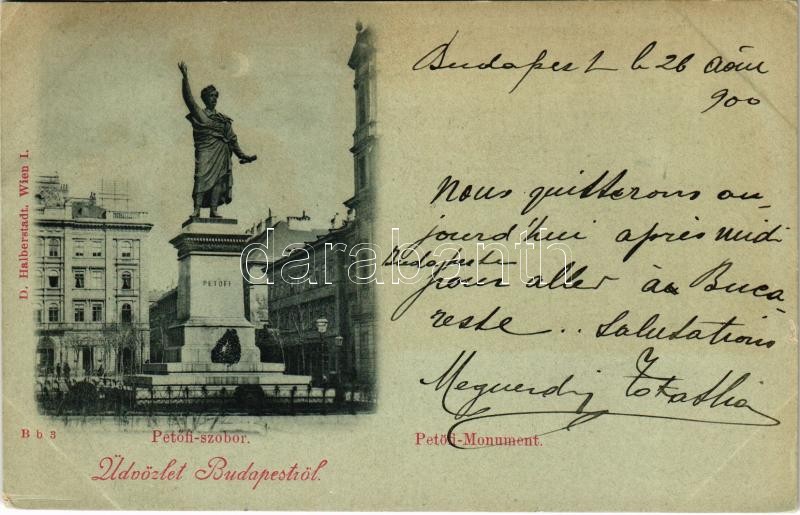 Budapest le 26 Août
900
Nous quitterons au-
jourd'hui après midi
Budapeste
pour aller à Buca-
reste .. Salutations
Meguerdig
PETŐFI
D. Halberstadt, Wien I.
B b 3
Petőfi-szobor.
Petőfi-Monument.
Üdvözlet Budapestről.
darabanth